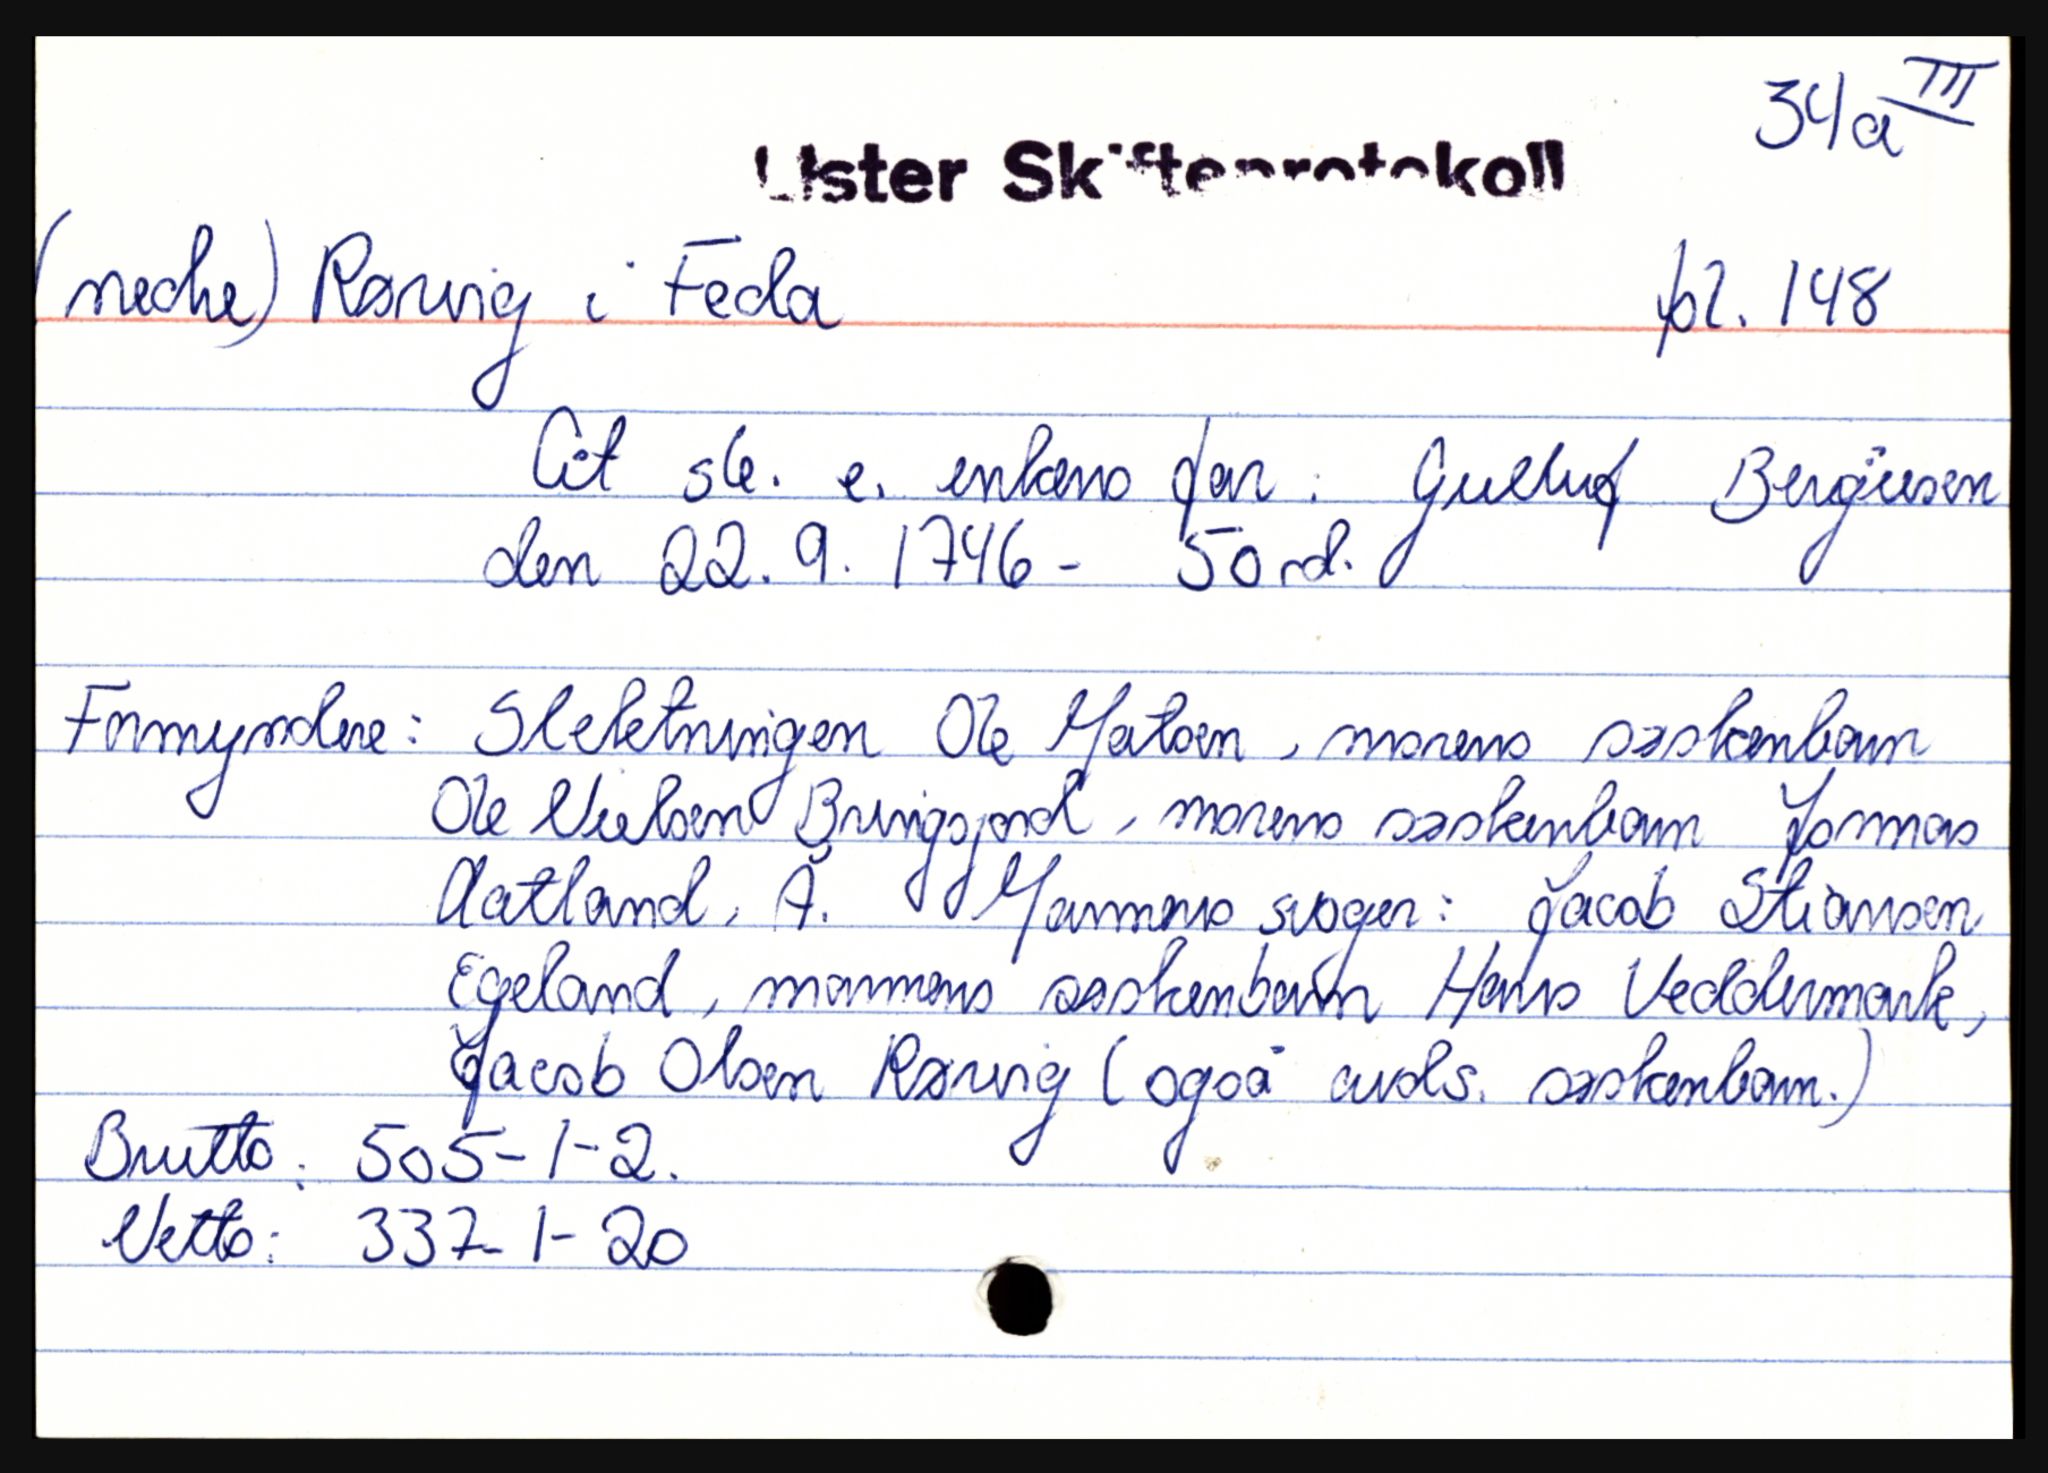 34a III
Lister Skifteprotokoll
(nedre) Rørvig i Feda pl. 148
Cit sk. e. enkens far: Gulluf Bergiusen
den 22. 9. 1746 - 50 rd.
Formyndere: Slektningen Ole Matsen, morens søskenbarn
Ole Nielsen Bringsjord, morens søskenbarn Jonas
Aatland, Å. Mannens svoger: Jacob Stiansen
Egeland, mannens søskenbarn Hans Veddermark,
Jacob Olsen Rørvig (også avds. søskenbarn.)
Brutto: 505-1-2.
Netto: 337-1-20